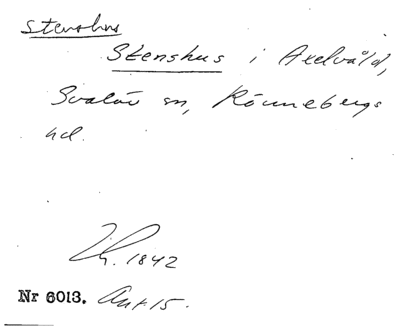 Stenshus
Stenshus i Axelvåld,
Svalöv sn, Rönnebergs
hd.
1842
Nr 6013. Ant. 15.